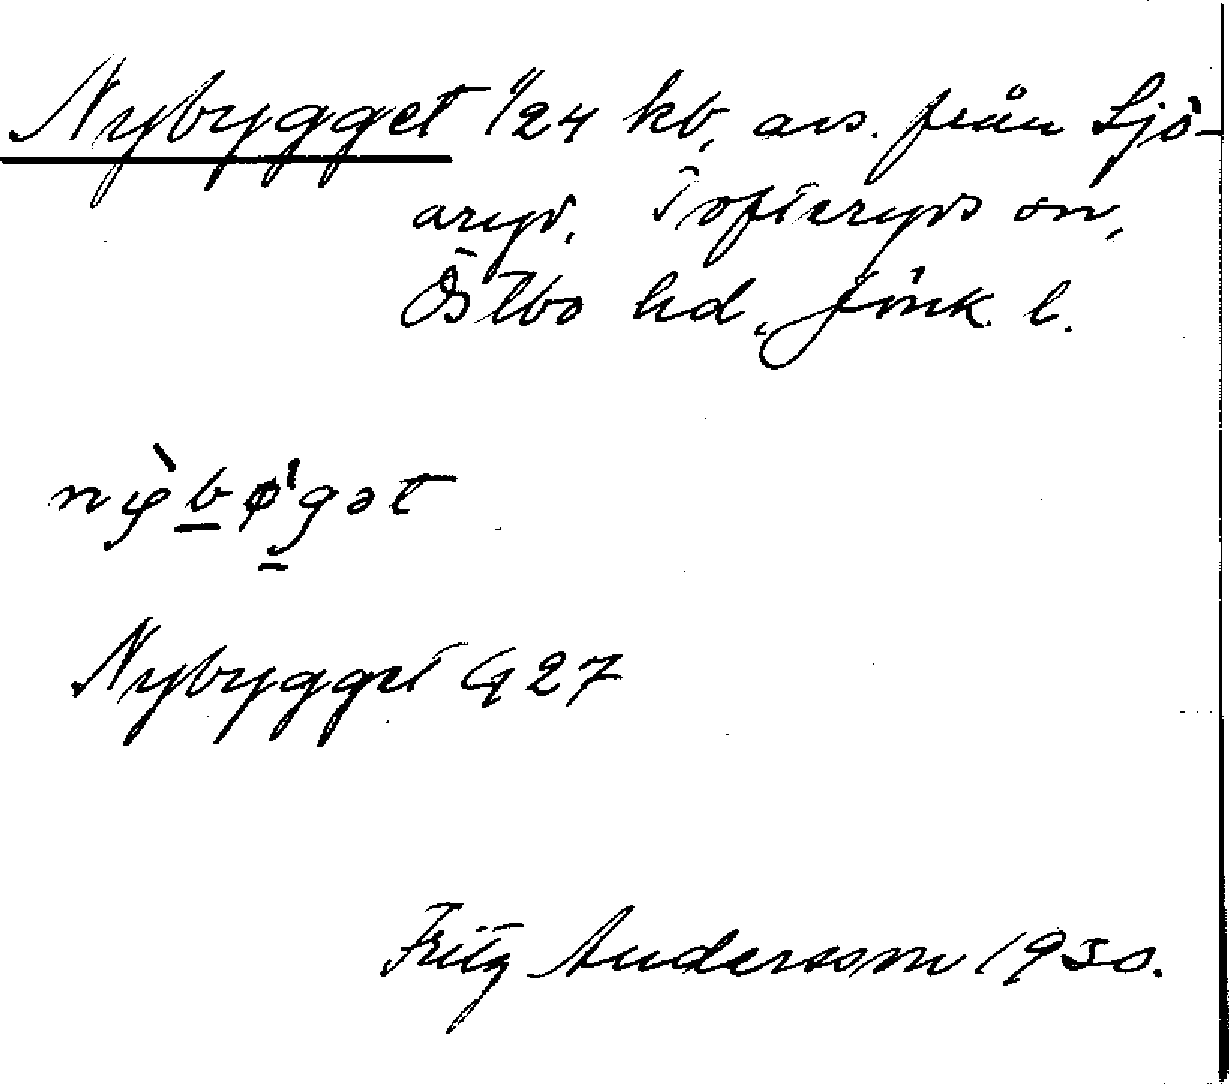 Nybygget 1/24 kb, avs. från Sjö-
aryd, Tofteryds sn,
Östbo hd, Jönk. l.
nỳbø'gət
Nybygget G 27
Fritz Andersson 1930.